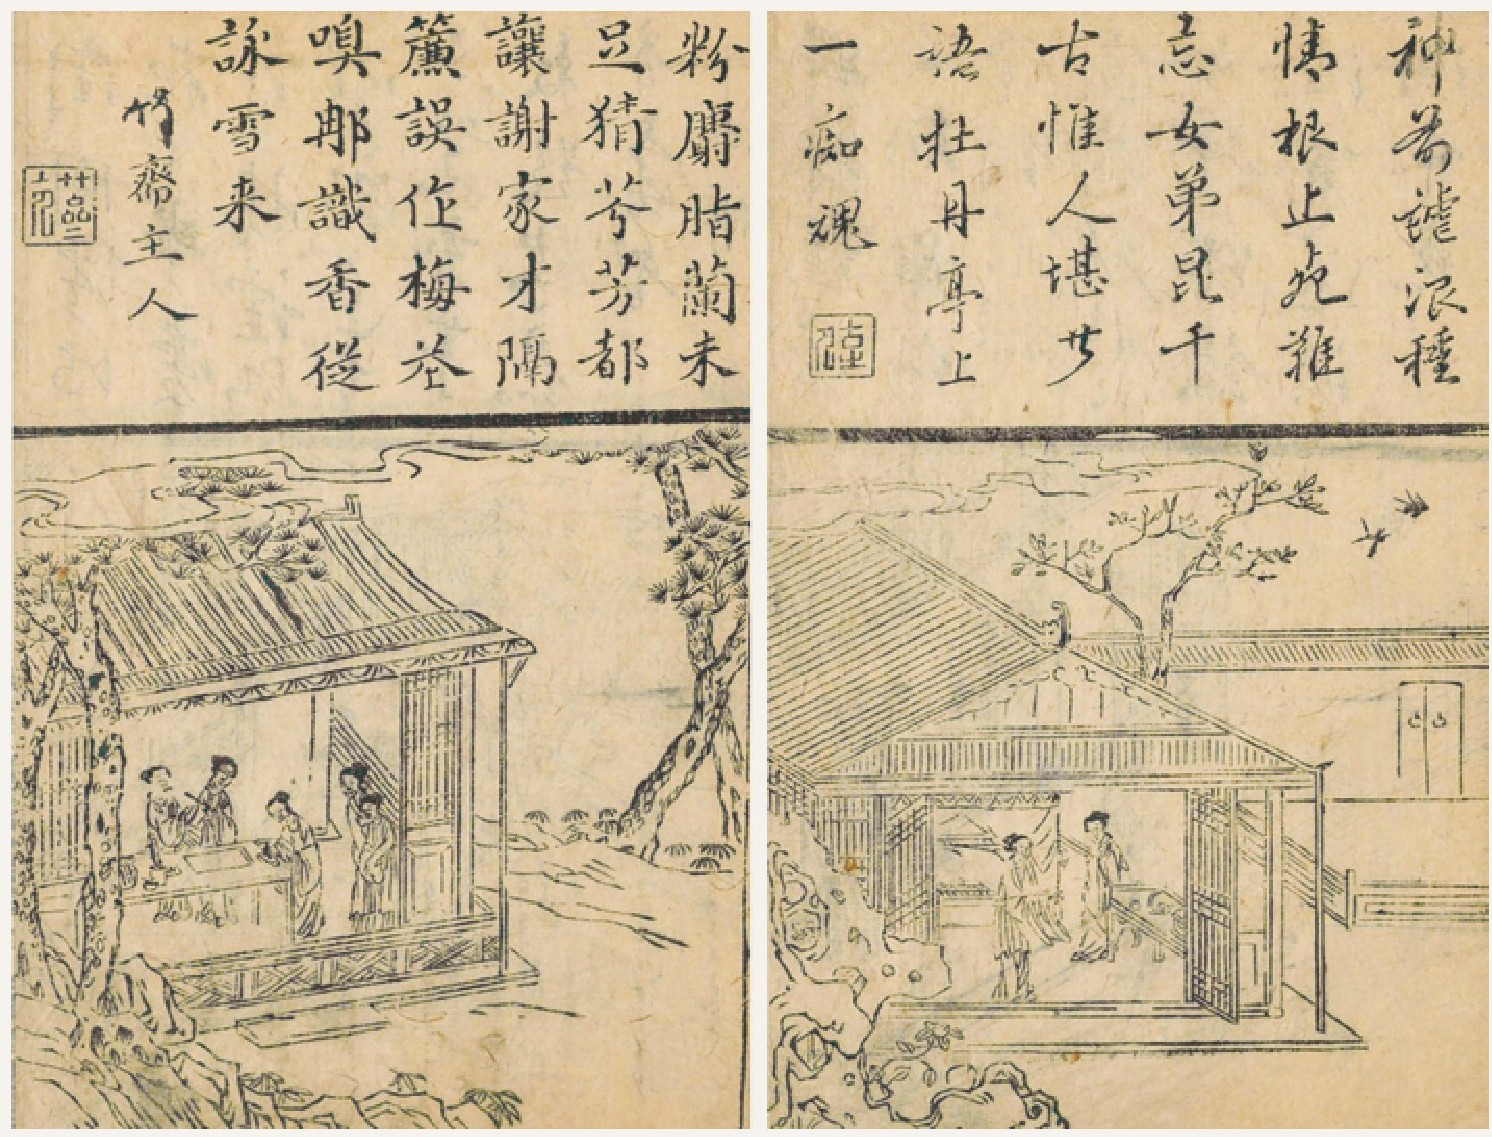 神前謔浪種
情根止死難
忘女弟昆千
古惟人堪共
語牡丹亭上
一痴魂
粉麝脂蘭未
足猜芬芳都
讓謝家才隔
簾誤作梅花
嗅那識香從
詠雪来
竹齋主人